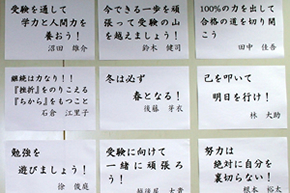 受験を通して
学力と人間力を
養おう!
沼田 雄介
今できる一歩を頑
張って受験の山
を越えましょう!
鈴木 健司
100%の力を出して
合格の道を切り開
こう
田中 佳吾
継続は力なり!!
『挫折』をのりこえる
『ちから』をもつこと
石倉 江里子
冬は必ず
春となる!
後藤 芽衣
己を叩いて
明日を行け!
林 大助
勉強を
遊びましょう!
徐 俊庭
受験に向けて
一緒に頑張ろ
う!
越後屋 大貴
努力は
絶対に自分を
裏切らない!
根本 裕太